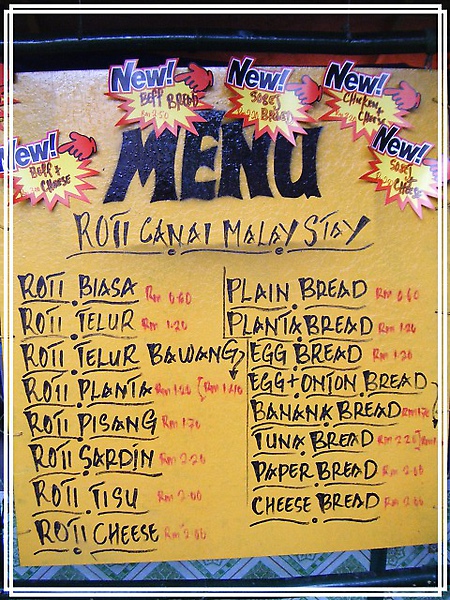 New! BEFF BREAD RM 2.50
New! SOBEJ BREAD
New! CHICKEN + CHEESE
New! BEEF + CHEESE
New! SOBEJ CHEESE
MENU
ROTI CANAI MALAYSTAY
ROTI BIASA RM 0.60
ROTI TELUR RM 1.20
ROTI TELUR BAWANG
ROTI PLANTA RM 1.20 (RM 1.40)
ROTI PISANG RM 1.70
ROTI SARDIN RM 2.20
ROTI TISU RM 2.00
ROTI CHEESE RM 2.00
PLAIN BREAD RM 0.60
PLANTA BREAD RM 1.20
EGG BREAD RM 1.20
EGG+ONION BREAD
BANANA BREAD RM 1.70
TUNA BREAD RM 2.20
PAPER BREAD RM 2.00
CHEESE BREAD RM 2.00